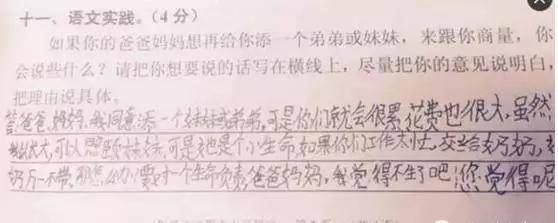 十一、语文实践。(4分)
如果你的爸爸妈妈想再给你添一个弟弟或妹妹，来跟你商量，你
会说些什么？请把你想要说的话写在横线上，尽量把你的意见说明白，
把理由说具体。
答:爸爸,妈妈,我同意添一个妹妹或弟弟,可是你们就会很累,花费也很大,虽然
我长大,可以照顾妹妹,可是她是个小生命,如果你们工作太忙,交给奶奶,
奶万一不带,怎么办?要对一个生命负责,爸爸妈妈,我觉得不生了吧,您觉得呢